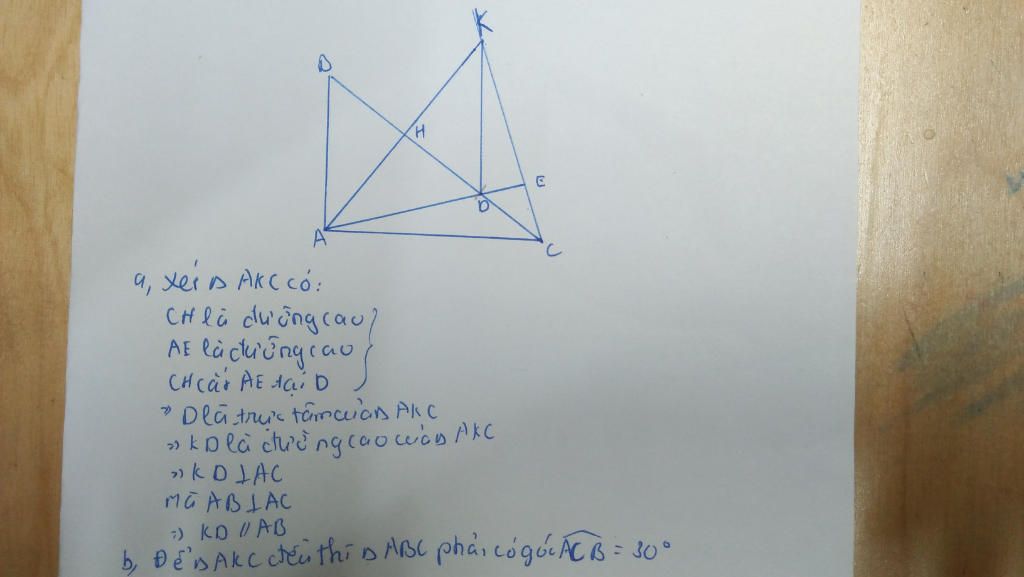 K
B
H
E
D
A
C
a, xét Δ AKC có:
CH là đường cao
AE là đường cao
CH cắt AE tại D
=> D là trực tâm của Δ AKC
=> KD là đường cao của Δ AKC
=> KD ⊥ AC
mà AB ⊥ AC
=> KD // AB
b, Để Δ AKC đều thì Δ ABC phải có góc ACB = 30°